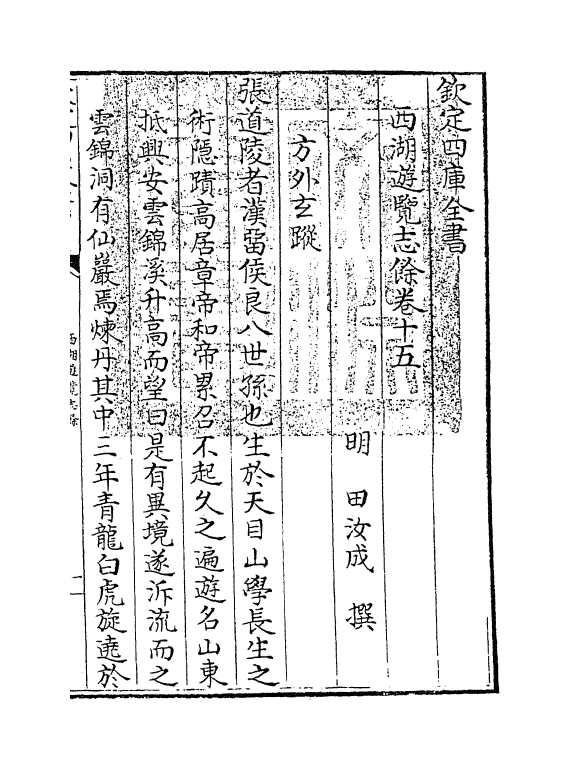 欽定四庫全書
西湖遊覽志餘卷十五
明 田汝成 撰
方外玄蹤
張道陵者漢留侯良八世孫也生於天目山學長生之
術隱蹟高居章帝和帝累召不起久之遍遊名山東
抵興安雲錦溪升高而望曰是有異境遂泝流而之
雲錦洞有仙巖焉煉丹其中三年青龍白虎旋遶於
西湖遊覽志餘